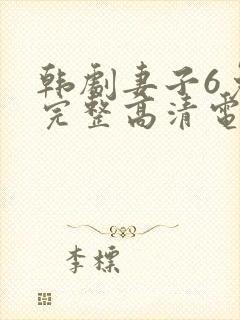 韩剧妻子6
完整高清電
李標